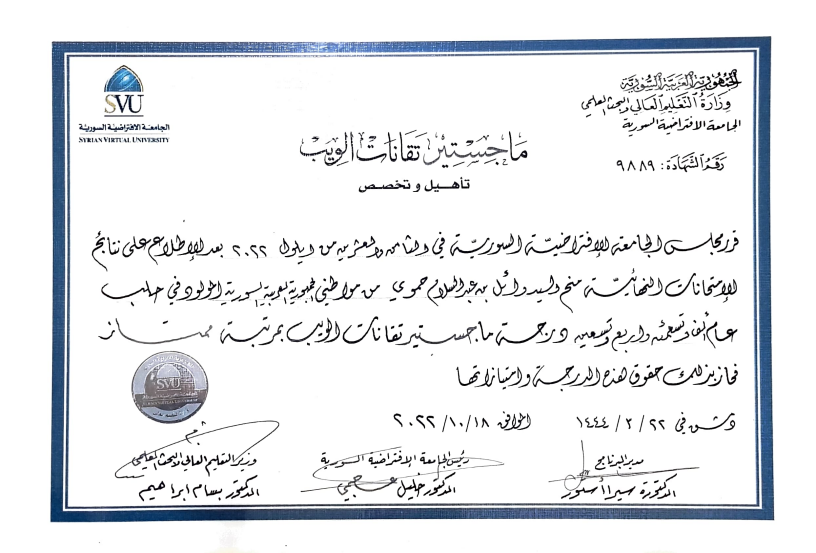 الجمهورية العربية السورية
وزارة التعليم العالي والبحث العلمي
الجامعة الافتراضية السورية
رقم الشهادة: ٩٨٨٩
SVU
الجامعة الافتراضية السورية
SYRIAN VIRTUAL UNIVERSITY
ماجستير تقانات الويب
تأهيل و تخصص
قرر مجلس الجامعة الافتراضية السورية في الثامن والعشرين من ايلول ٢٠٢٢ بعد الاطلاع على نتائج
الامتحانات النهائية منح السيد وائل بن عبد السلام حموي من مواطني الجمهورية العربية السورية المولود في حلب
عام ألف وتسعمئة واربع وتسعين درجة ماجستير تقانات الويب بمرتبة ممتاز
فحاز بذلك حقوق هذه الدرجة وامتيازاتها
دمشق في ٢٢ / ٣ / ١٤٤٤ الموافق ١٨ / ١٠ / ٢٠٢٢
مدير البرنامج
الدكتورة سيرا أستور
رئيس الجامعة الافتراضية السورية
الدكتور خليل عجمي
وزير التعليم العالي والبحث العلمي
الدكتور بسام ابراهيم
SVU